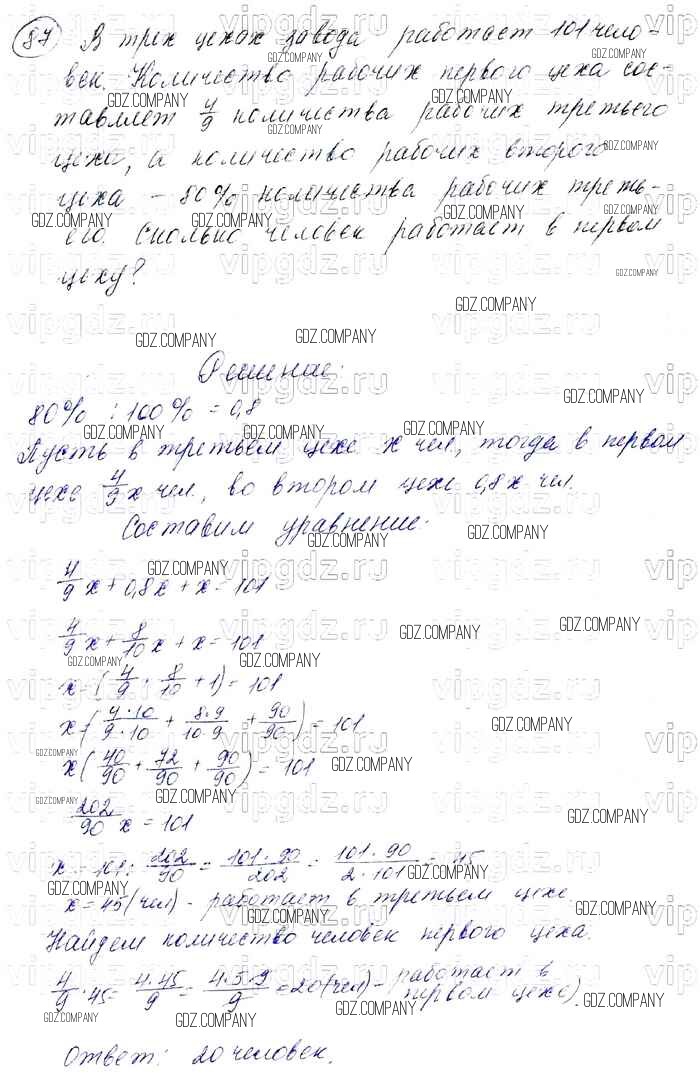 87) В трех цехах завода работает 101 чело-
век. Количество рабочих первого цеха сос-
тавляет 4/9 количества рабочих третьего
цеха, а количество рабочих второго
цеха - 80% количества рабочих треть-
его. Сколько человек работает в первом
цеху?
Решение:
80% : 100% = 0,8
Пусть в третьем цехе x чел., тогда в первом
цехе 4/9 x чел., во втором цехе 0,8x чел.
Составим уравнение:
4/9 x + 0,8x + x = 101
4/9 x + 8/10 x + x = 101
x (4/9 + 8/10 + 1) = 101
x (4·10/9·10 + 8·9/10·9 + 90/90) = 101
x (40/90 + 72/90 + 90/90) = 101
202/90 x = 101
x = 101 : 202/90 = 101·90/202 = 101·90/2·101 = 45
x = 45 (чел) - работает в третьем цехе.
Найдем количество человек первого цеха.
4/9 · 45 = 4·45/9 = 4·5·9/9 = 20 (чел) - (работает в
первом цехе).
Ответ: 20 человек.
GDZ.COMPANY
vipgdz.ru